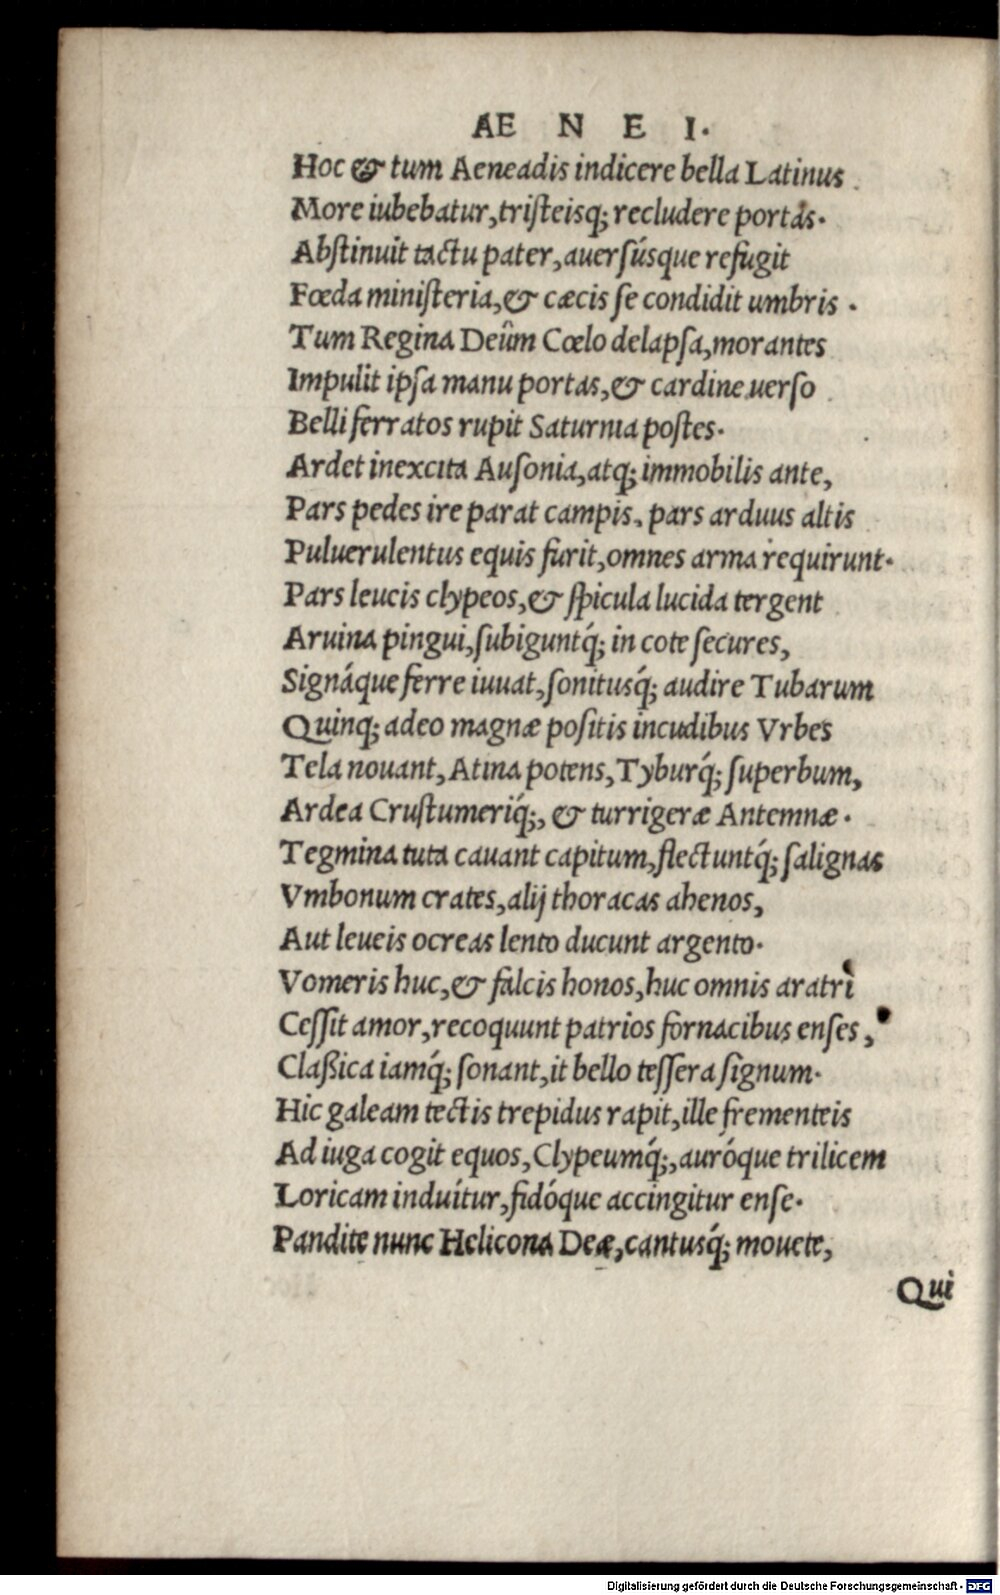 AE N E I.
Hoc & tum Aeneadis indicere bella Latinus
More iubebatur, tristeisq; recludere portas.
Abstinuit tactu pater, auersúsque refugit
Fœda ministeria, & cæcis se condidit umbris.
Tum Regina Deûm Cœlo delapsa, morantes
Impulit ipsa manu portas, & cardine uerso
Belli ferratos rupit Saturnia postes.
Ardet inexcita Ausonia, atq; immobilis ante,
Pars pedes ire parat campis, pars arduus altis
Puluerulentus equis furit, omnes arma requirunt.
Pars leucis clypeos, & spicula lucida tergent
Aruina pingui, subiguntq́; in cote secures,
Signáque ferre iuuat, sonitusq́; audire Tubarum
Quinq; adeo magnæ positis incudibus Vrbes
Tela nouant, Atina potens, Tyburq́; superbum,
Ardea Crustumeriq́;, & turrigeræ Antemnæ.
Tegmina tuta cauant capitum, flectuntq́; salignas
Vmbonum crates, alij thoracas ahenos,
Aut leueis ocreas lento ducunt argento.
Vomeris huc, & falcis honos, huc omnis aratri
Cessit amor, recoquunt patrios fornacibus enses,
Claßica iamq́; sonant, it bello tessera signum.
Hic galeam tectis trepidus rapit, ille frementeis
Ad iuga cogit equos, Clypeumq́;, auróque trilicem
Loricam induitur, fidóque accingitur ense.
Pandite nunc Helicona Deæ, cantusq́; mouete,
Qui
Digitalisierung gefördert durch die Deutsche Forschungsgemeinschaft - DFG